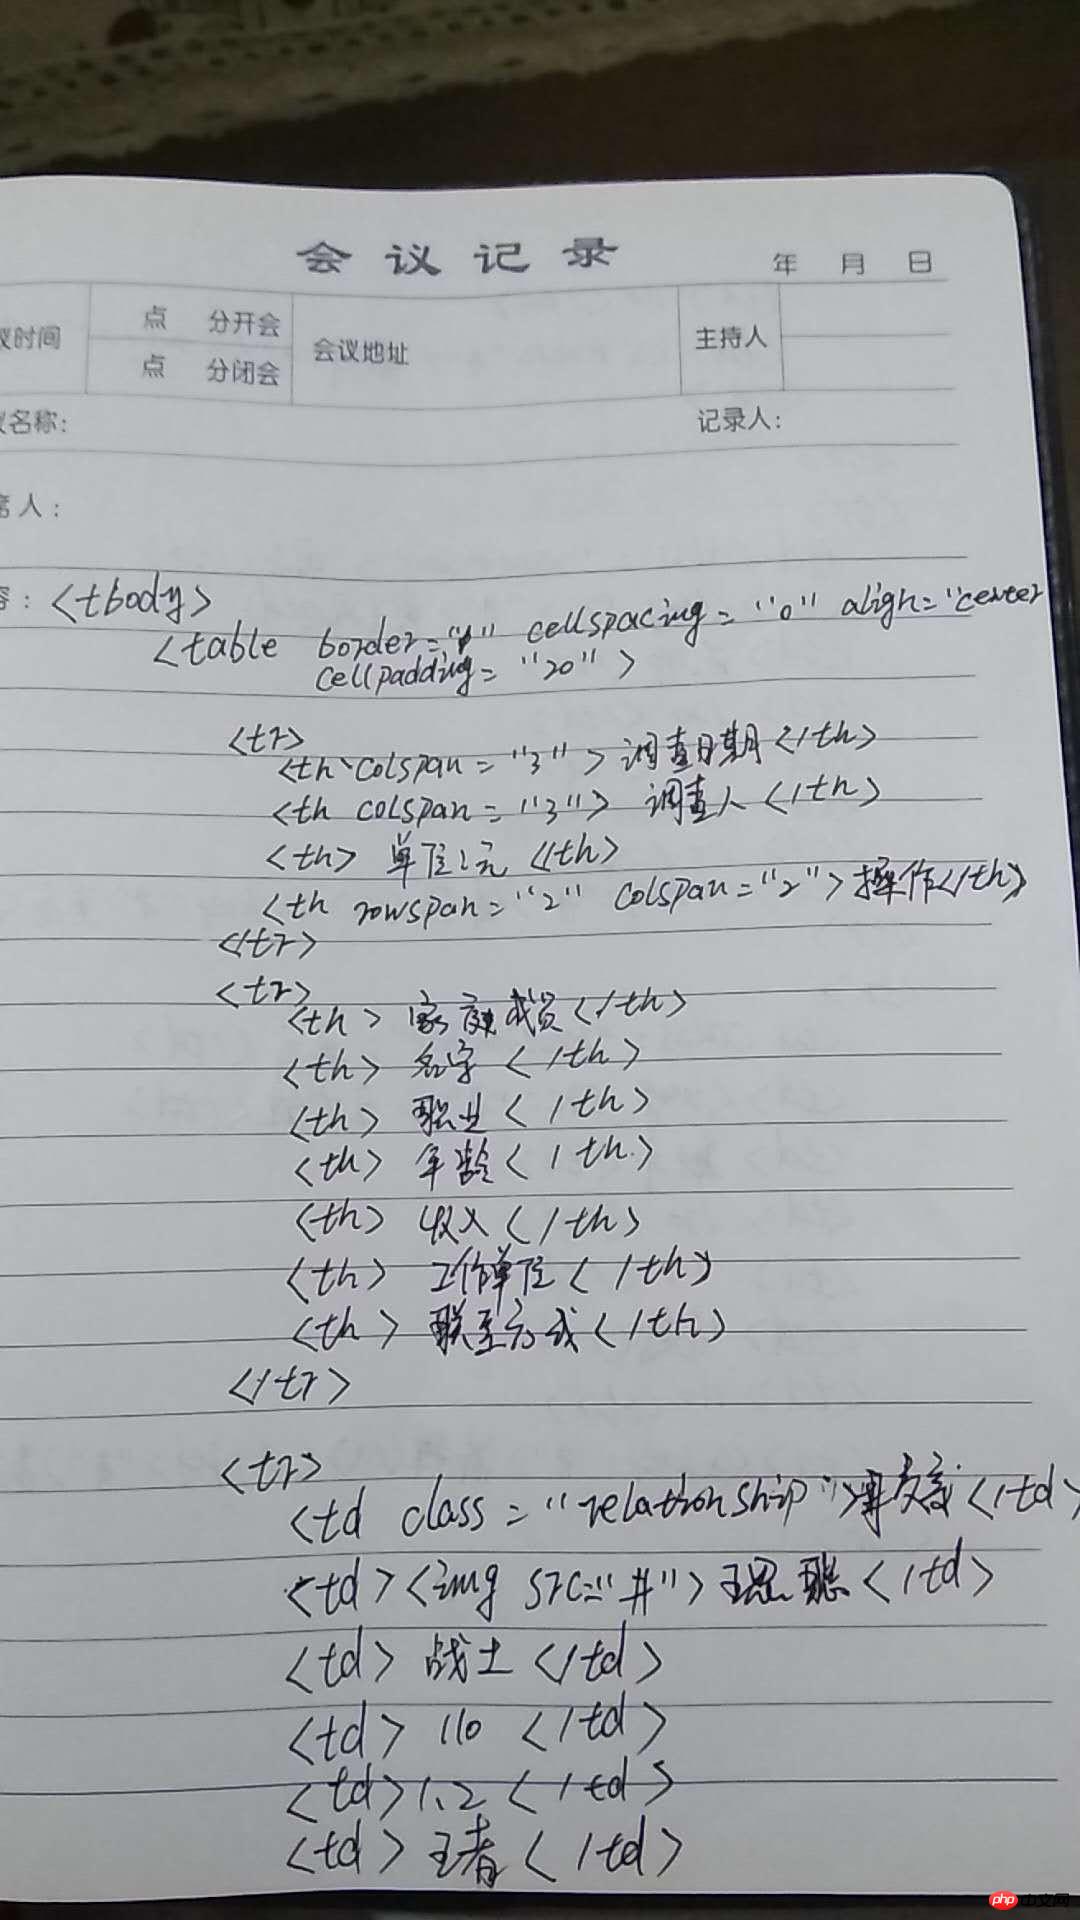 会议记录
年 月 日
议时间 点 分开会 会议地址 主持人
点 分闭会
议名称: 记录人:
席人:
容: <tbody>
<table border="1" cellspacing="0" align="center
cellpadding="20">
<tr>
<th colspan="3">调查日期</th>
<th colspan="3"> 调查人</th>
<th> 单位:元 </th>
<th rowspan="2" colspan="2">操作</th>
</tr>
<tr>
<th> 家庭成员</th>
<th> 名字 </th>
<th> 职业</th>
<th> 年龄</th>
<th> 收入</th>
<th> 工作单位</th>
<th> 联系方式</th>
</tr>
<tr>
<td class="relationship"></td>
<td><img src="#">王思聪</td>
<td> 战士 </td>
<td> 110 </td>
<td>1.2 </td>
<td> 王者 </td>
php 中文网